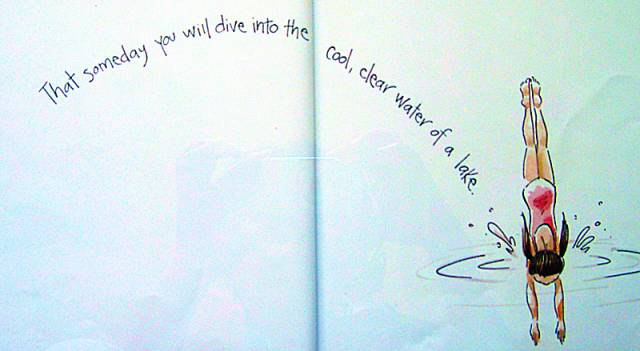 That someday you will dive into the cool, clear water of a lake.